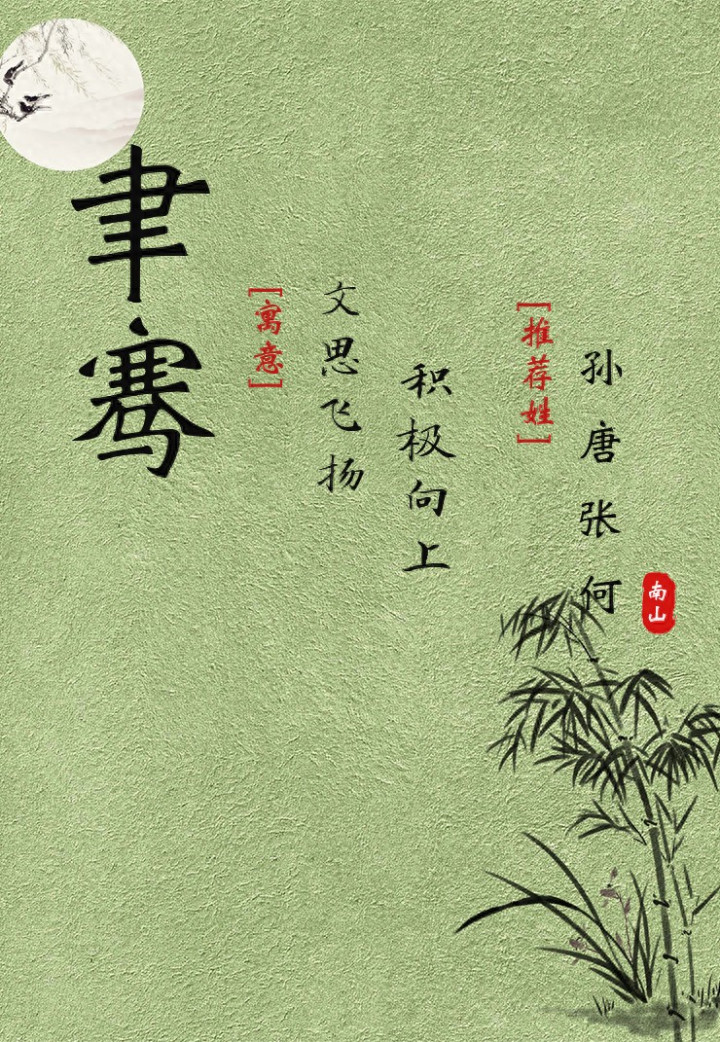 聿骞
[寓意]
文思飞扬
积极向上
[推荐姓]
孙唐张何
南山